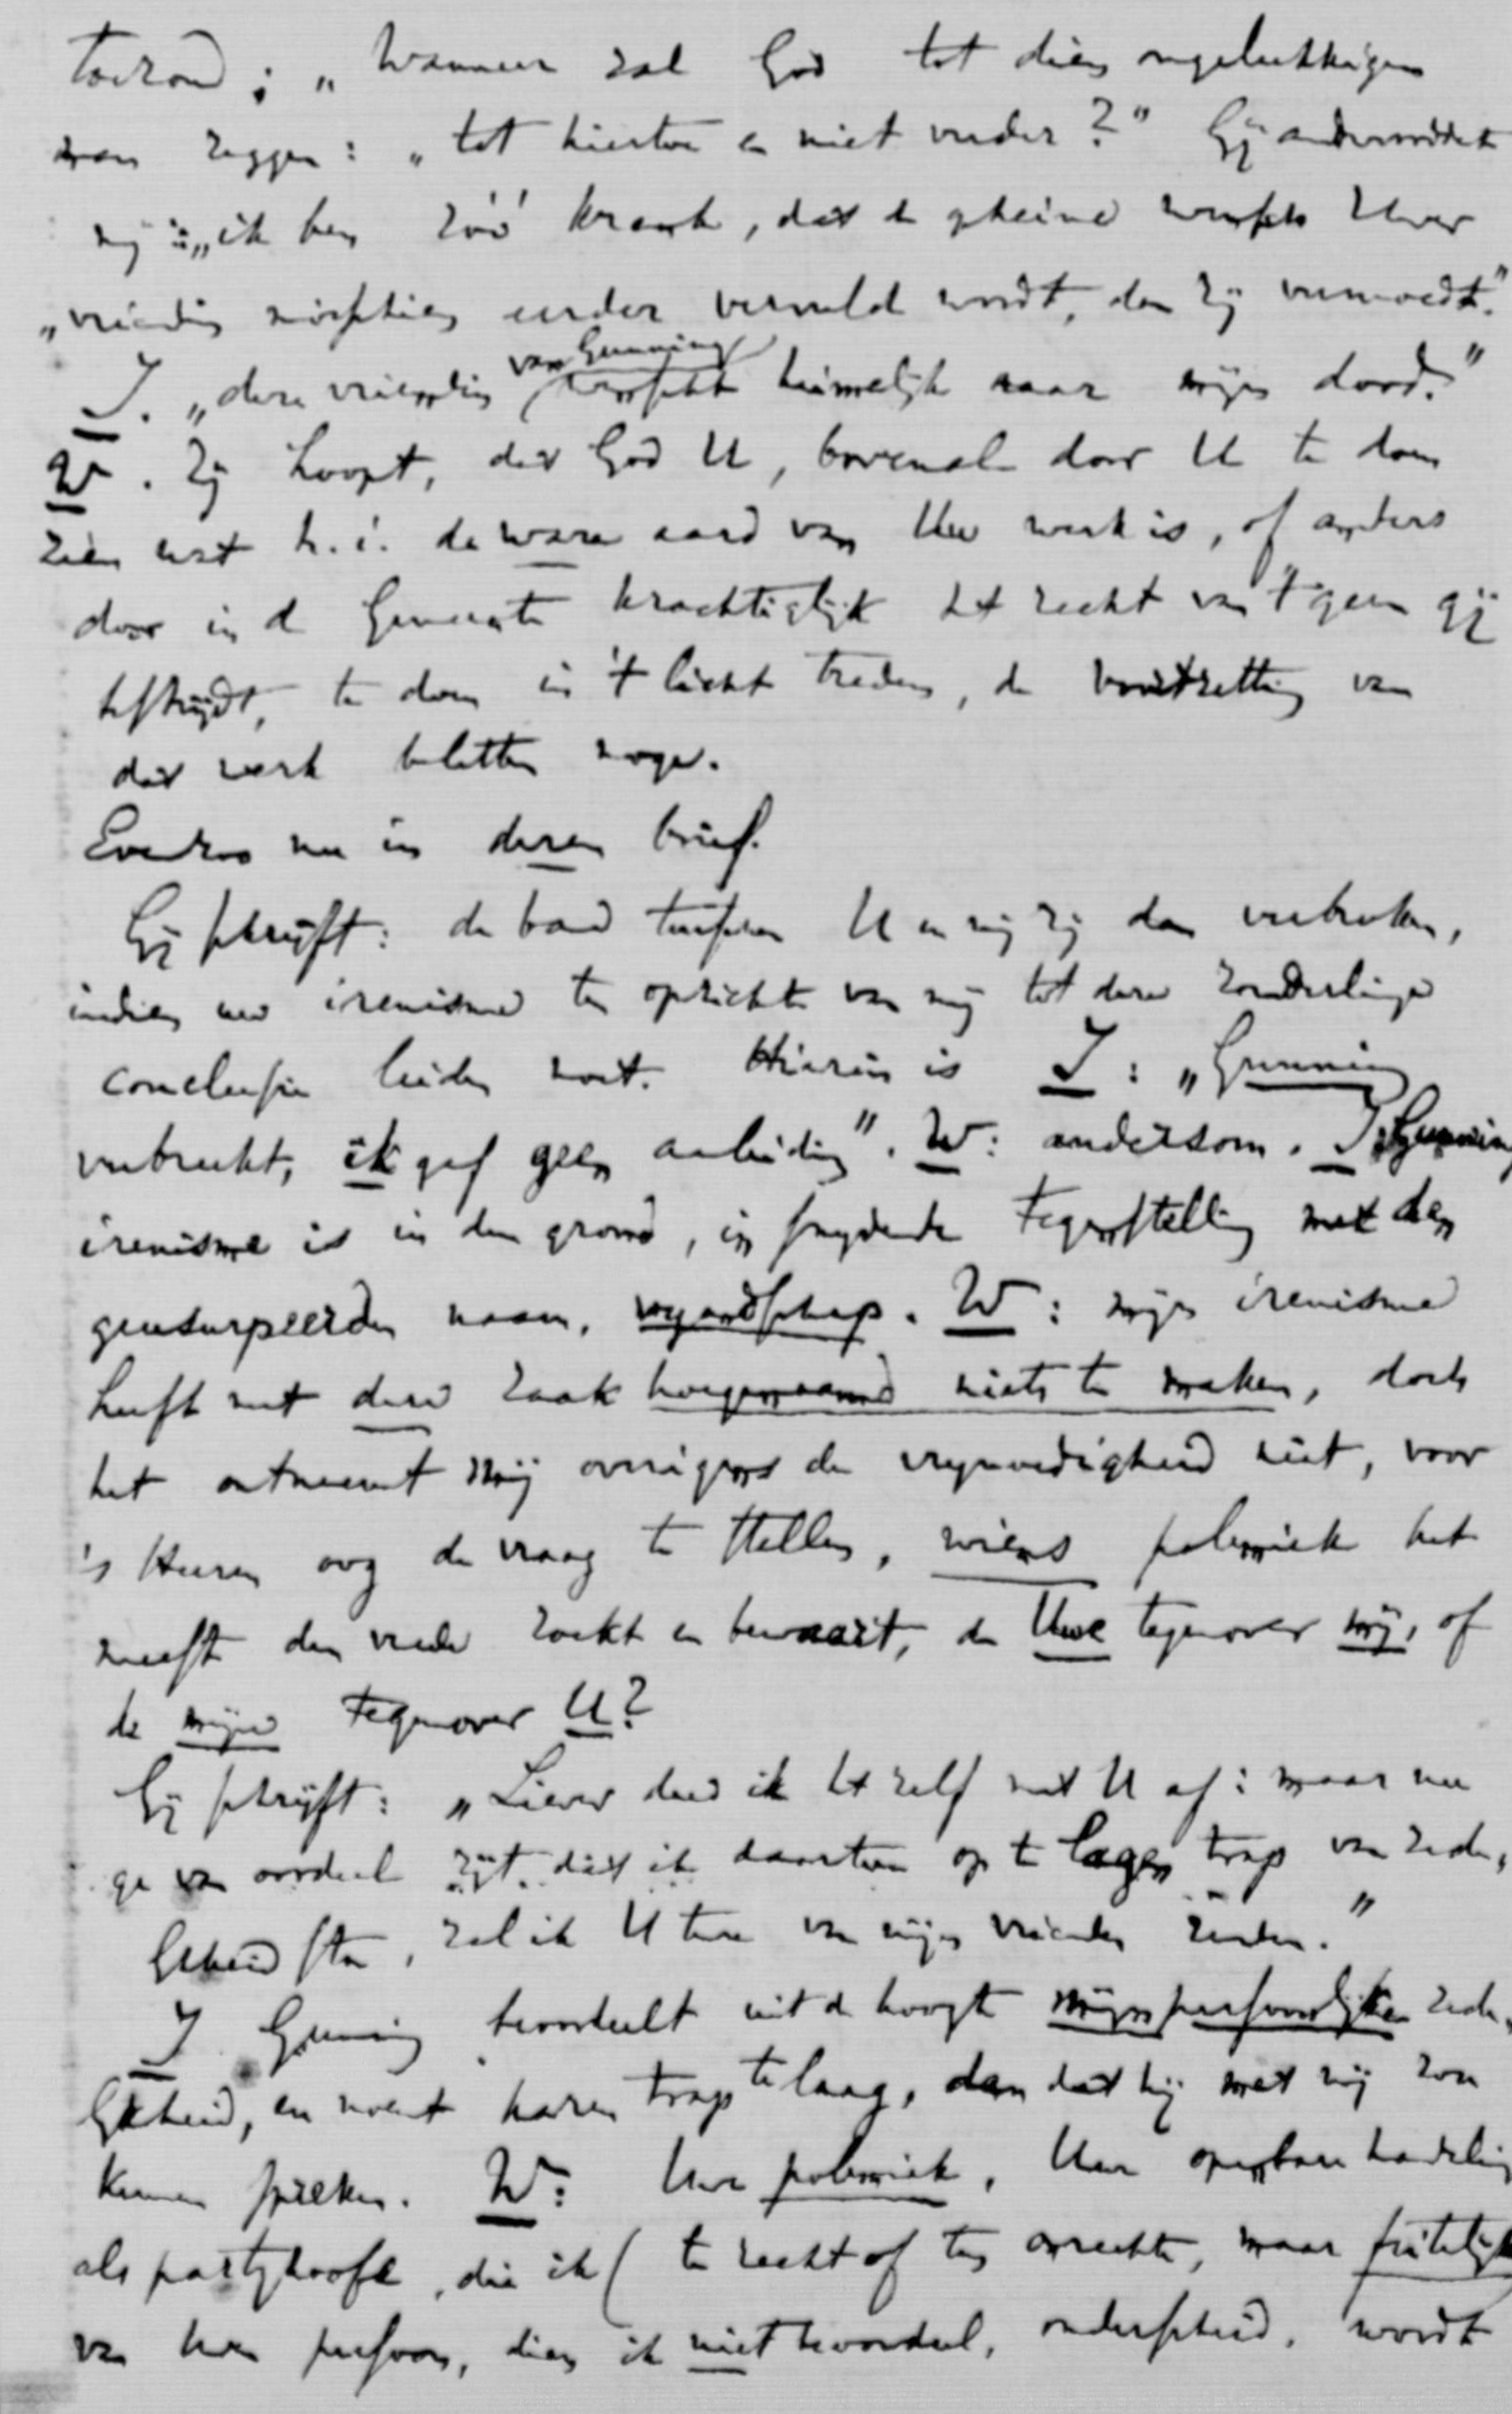 toezond: „Wanneer zal God tot dien ongelukkigen
man zeggen: „tot hiertoe en niet verder?" Gij antwoorddet
mij: „ik ben zóó krank, dat de geheime wensch Uwer
„vriendin misschien eerder vervuld wordt, dan zij vermoedt."
I. „deze vriendin van Gunning wenscht heimelijk naar mijn dood."
W. Zij hoopt, dat God U, bovenal door U te doen
zien wat h.i. de ware aard van Uw werk is, of anders
door in de Gemeente krachtiglijk het recht van 't geen gij
bestrijdt, te doen in 't licht treden, de voortzetting van
dat werk beletten moge.
Evenzoo nu in dezen brief.
Gij schrijft: de band tusschen U en mij zij dan verbroken,
indien uw irenisme ten opzichte van mij tot deze zonderlinge
conclusie leiden moet. Hierin is I: „Gunning
verbreekt, ik gaf geen aanleiding". W: andersom. I. Gunnings
irenisme is in den grond, in snijdende tegenstelling met den
geusurpeerden naam, vijandschap. W: mijn irenisme
heeft met deze zaak hoegenaamd niets te maken, doch
het ontneemt mij overigens de vrijmoedigheid niet, voor
's Heeren oog de vraag te stellen, wiens polemiek het
meest den vrede zoekt en bewaart, de Uwe tegenover mij, of
de mijne tegenover U?
Gij schrijft: „Liever deed ik het zelf met U af: maar nu
ge van oordeel zijt dat ik daartoe op te lagen trap van zede-
lijkheid sta, zal ik U twee van mijn vrienden zenden."
I Gunning beoordeelt uit de hoogte mijn persoonlijke zede-
lijkheid, en noemt haren trap te laag, dan dat hij met mij zou
kunnen spreken. W: Uwe polemiek, Uwe openbare handeling
als partijhoofd, die ik (te recht of ten onrechte, maar feitelijk
van Uw persoon, dien ik niet beoordeel, onderscheid, wordt